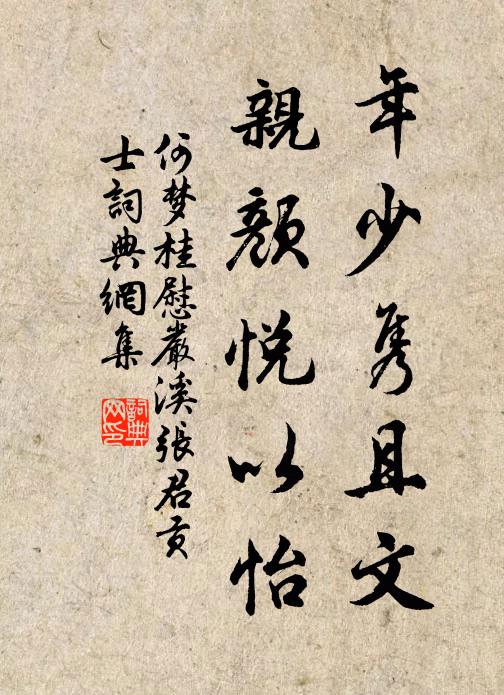 年少隽且文
親顔悦以怡
何梦桂慰嚴溪張君貢
士詞典網集
詞典
网印